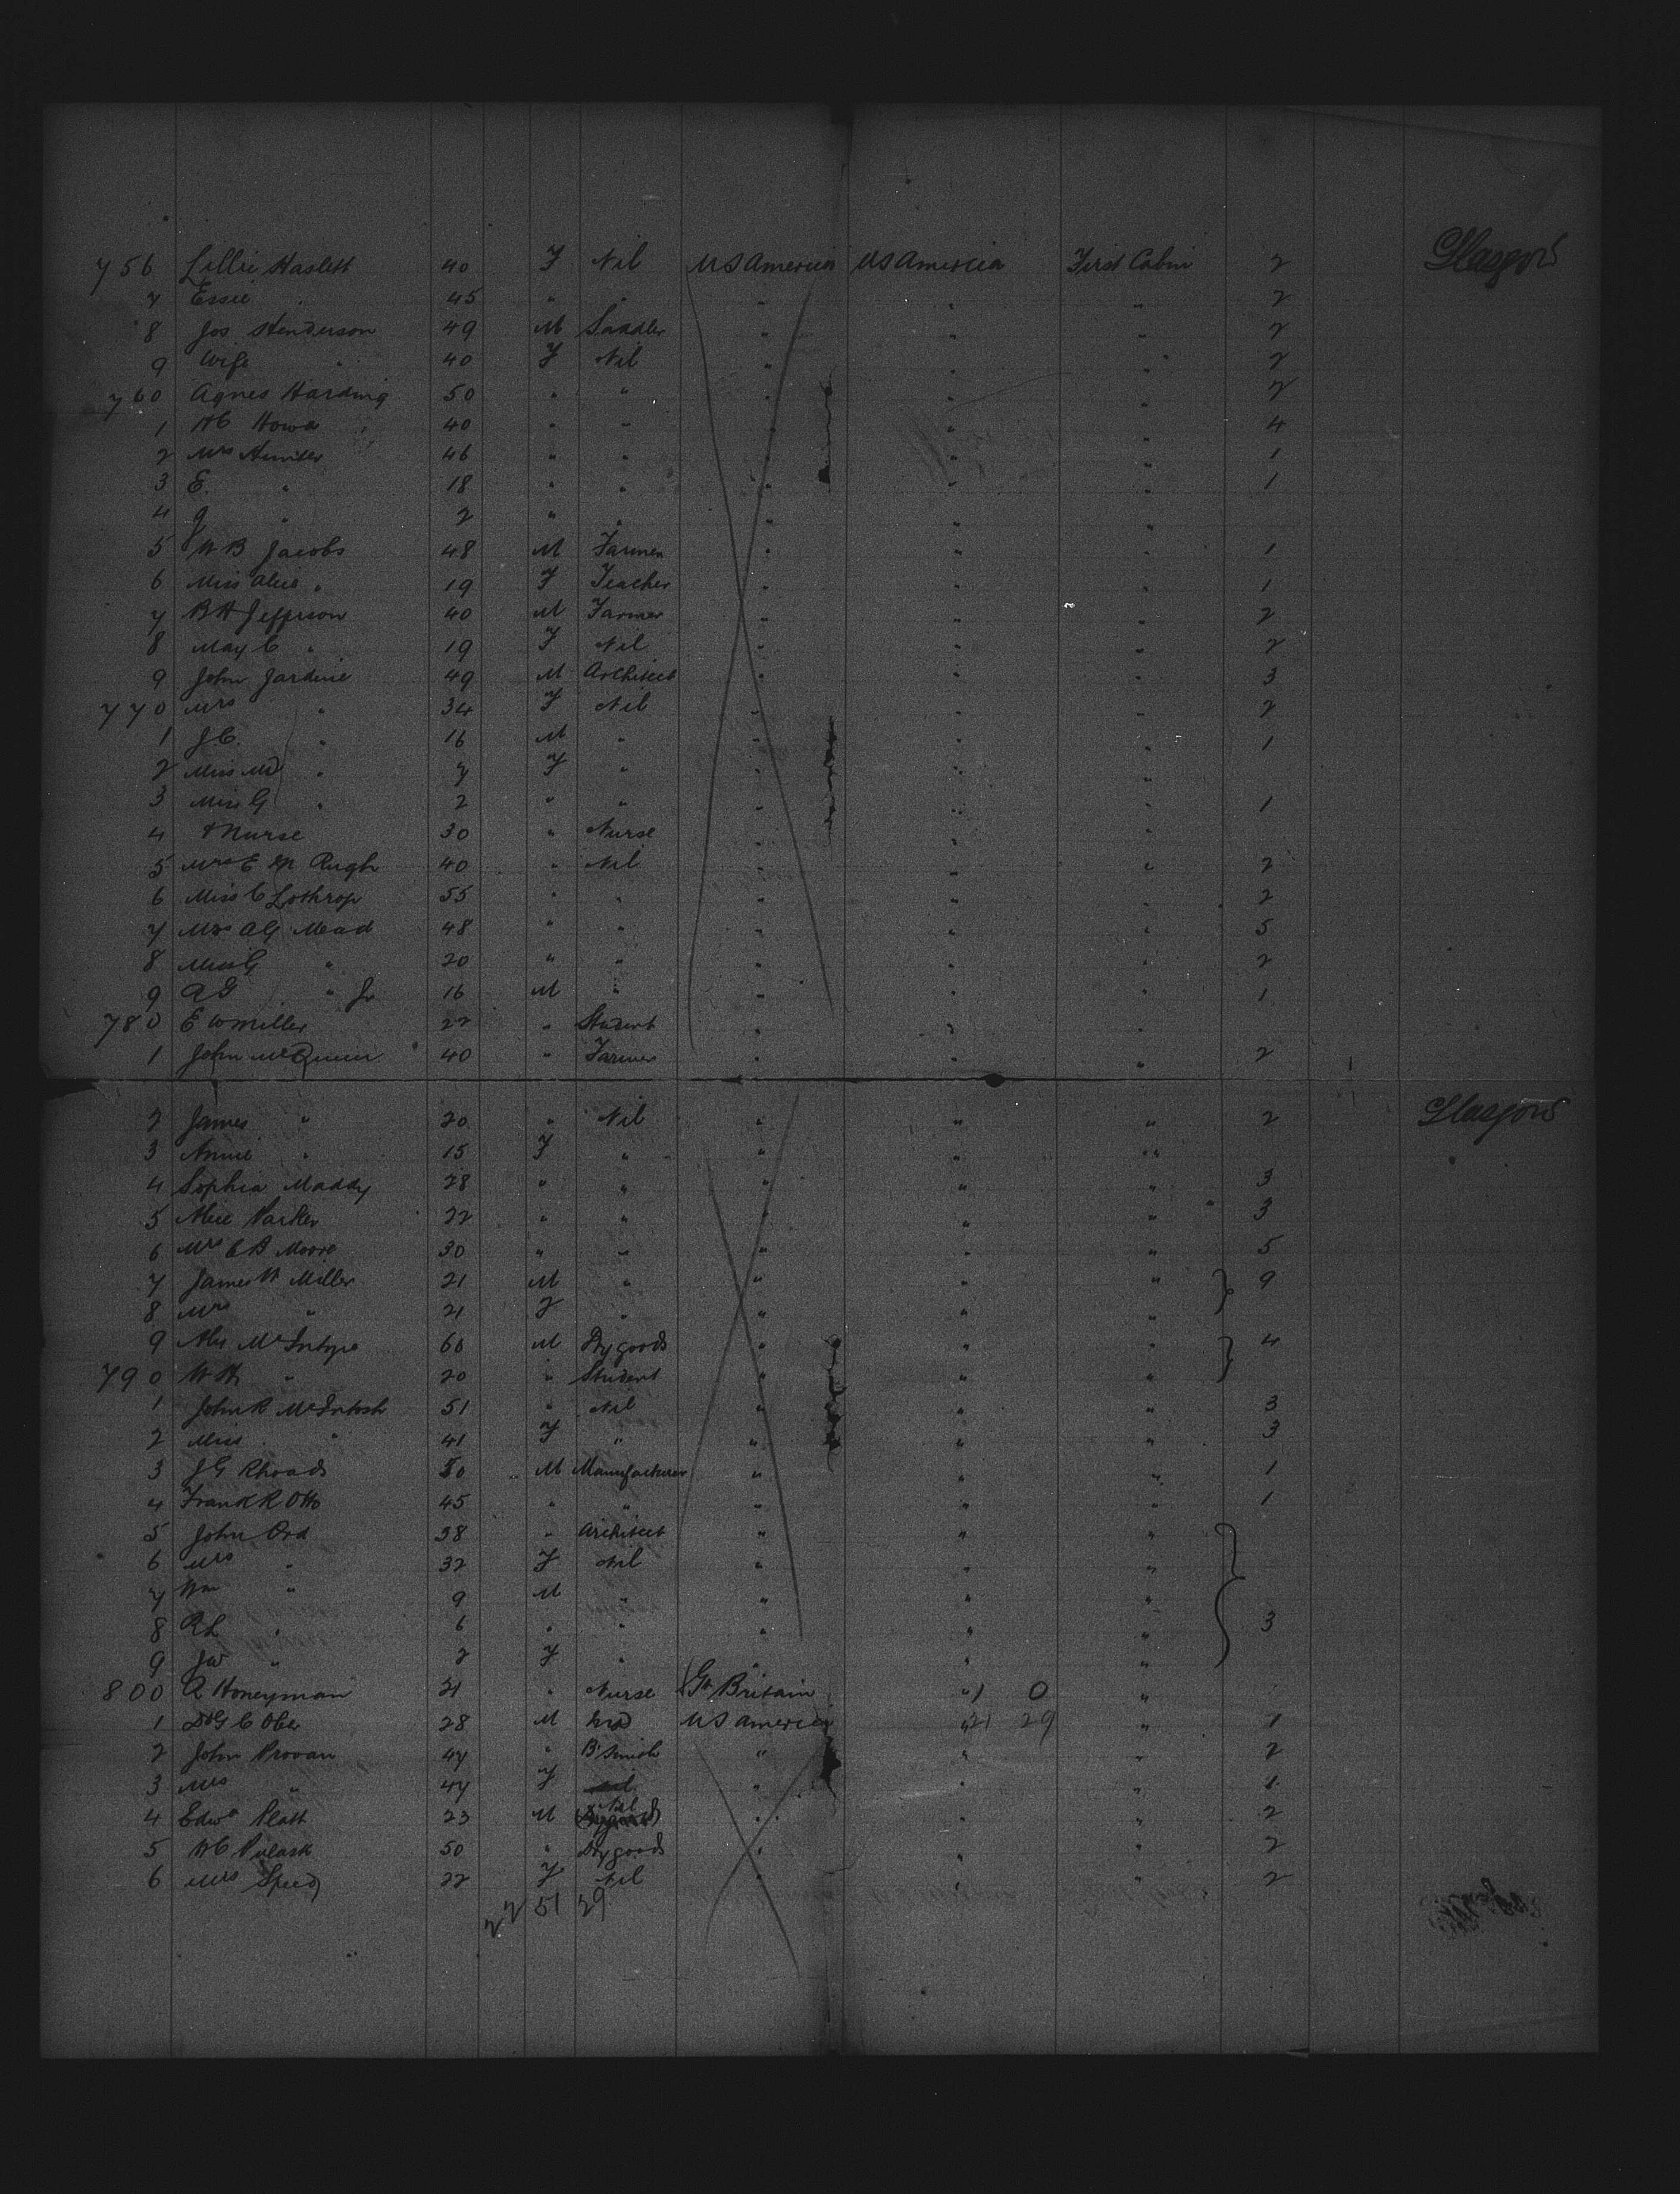 756 Lillie Haslett 40 F Nil US America US America First Cabin 2 Glasgow
7 Essie " 45 " " " " " 2
8 Jos Henderson 49 M Saddler " " " 2
9 Wife " 40 F Nil " " " 2
760 Agnes Harding 50 " " " " " 2
1 40 " " " " " 4
2 Mrs Hunter 46 " " " " " 1
3 E. " 18 " " " " " 1
4 G " 2 " " " " "
5 W B Jacobs 48 M Farmer " " " 1
6 Miss Alice " 19 F Teacher " " " 1
7 B H Jefferson 40 M Farmer " " " 2
8 May C " 19 F Nil " " " 2
9 John Jardine 49 M Architect " " " 3
770 Mrs " 34 F Nil " " " 2
1 J.C. " 16 M " " " " 1
2 Miss M " 7 F " " " "
3 Miss G " 2 " " " " " 1
4 & Nurse 30 " Nurse " " "
5 Mrs E M Pugh 40 " Nil " " " 2
6 Miss C Lothrop 55 " " " " " 2
7 Mrs A G Mead 48 " " " " " 5
8 Miss G " 20 " " " " " 2
9 A G " Jr 16 M " " " " 1
780 E W Miller 22 " Student " " "
1 John McQueen 40 " Farmer " " " 2
2 James " 20 " Nil " " " 2 Glasgow
3 Annie " 15 F " " " "
4 Sophia Maddy 28 " " " " " 3
5 Alice Parker 22 " " " " " 3
6 Mrs C B Moore 30 " " " " " 5
7 James W Miller 21 M " " " " 9
8 Mrs " 21 F " " " "
9 Alex McIntyre 66 M Dry goods " " " 4
790 W H " 20 " Student " " "
1 John R McIntosh 51 " Nil " " " 3
2 Miss " 41 F " " " " 3
3 J G Rhoads 50 M Manufacturer " " " 1
4 Frank R Otto 45 " " " " " 1
5 John Ord 38 " Architect " " "
6 Mrs " 32 F Nil " " "
7 Wm " 9 M " " " "
8 R L " 6 " " " " " 3
9 J W " 2 F " " " "
800 A Honeyman 21 " Nurse Gt Britain " 1 0 "
1 Dr G C Ober 28 M M D US America " 21 29 " 1
2 John Provan 47 " B'smith " " " 2
3 Mrs " 47 F Nil " " " 1
4 Edwd Platt 23 M Nil " " " 2
5 50 " Dry goods " " " 2
6 Mrs Speed 22 F Nil " " " 2
22 51 29